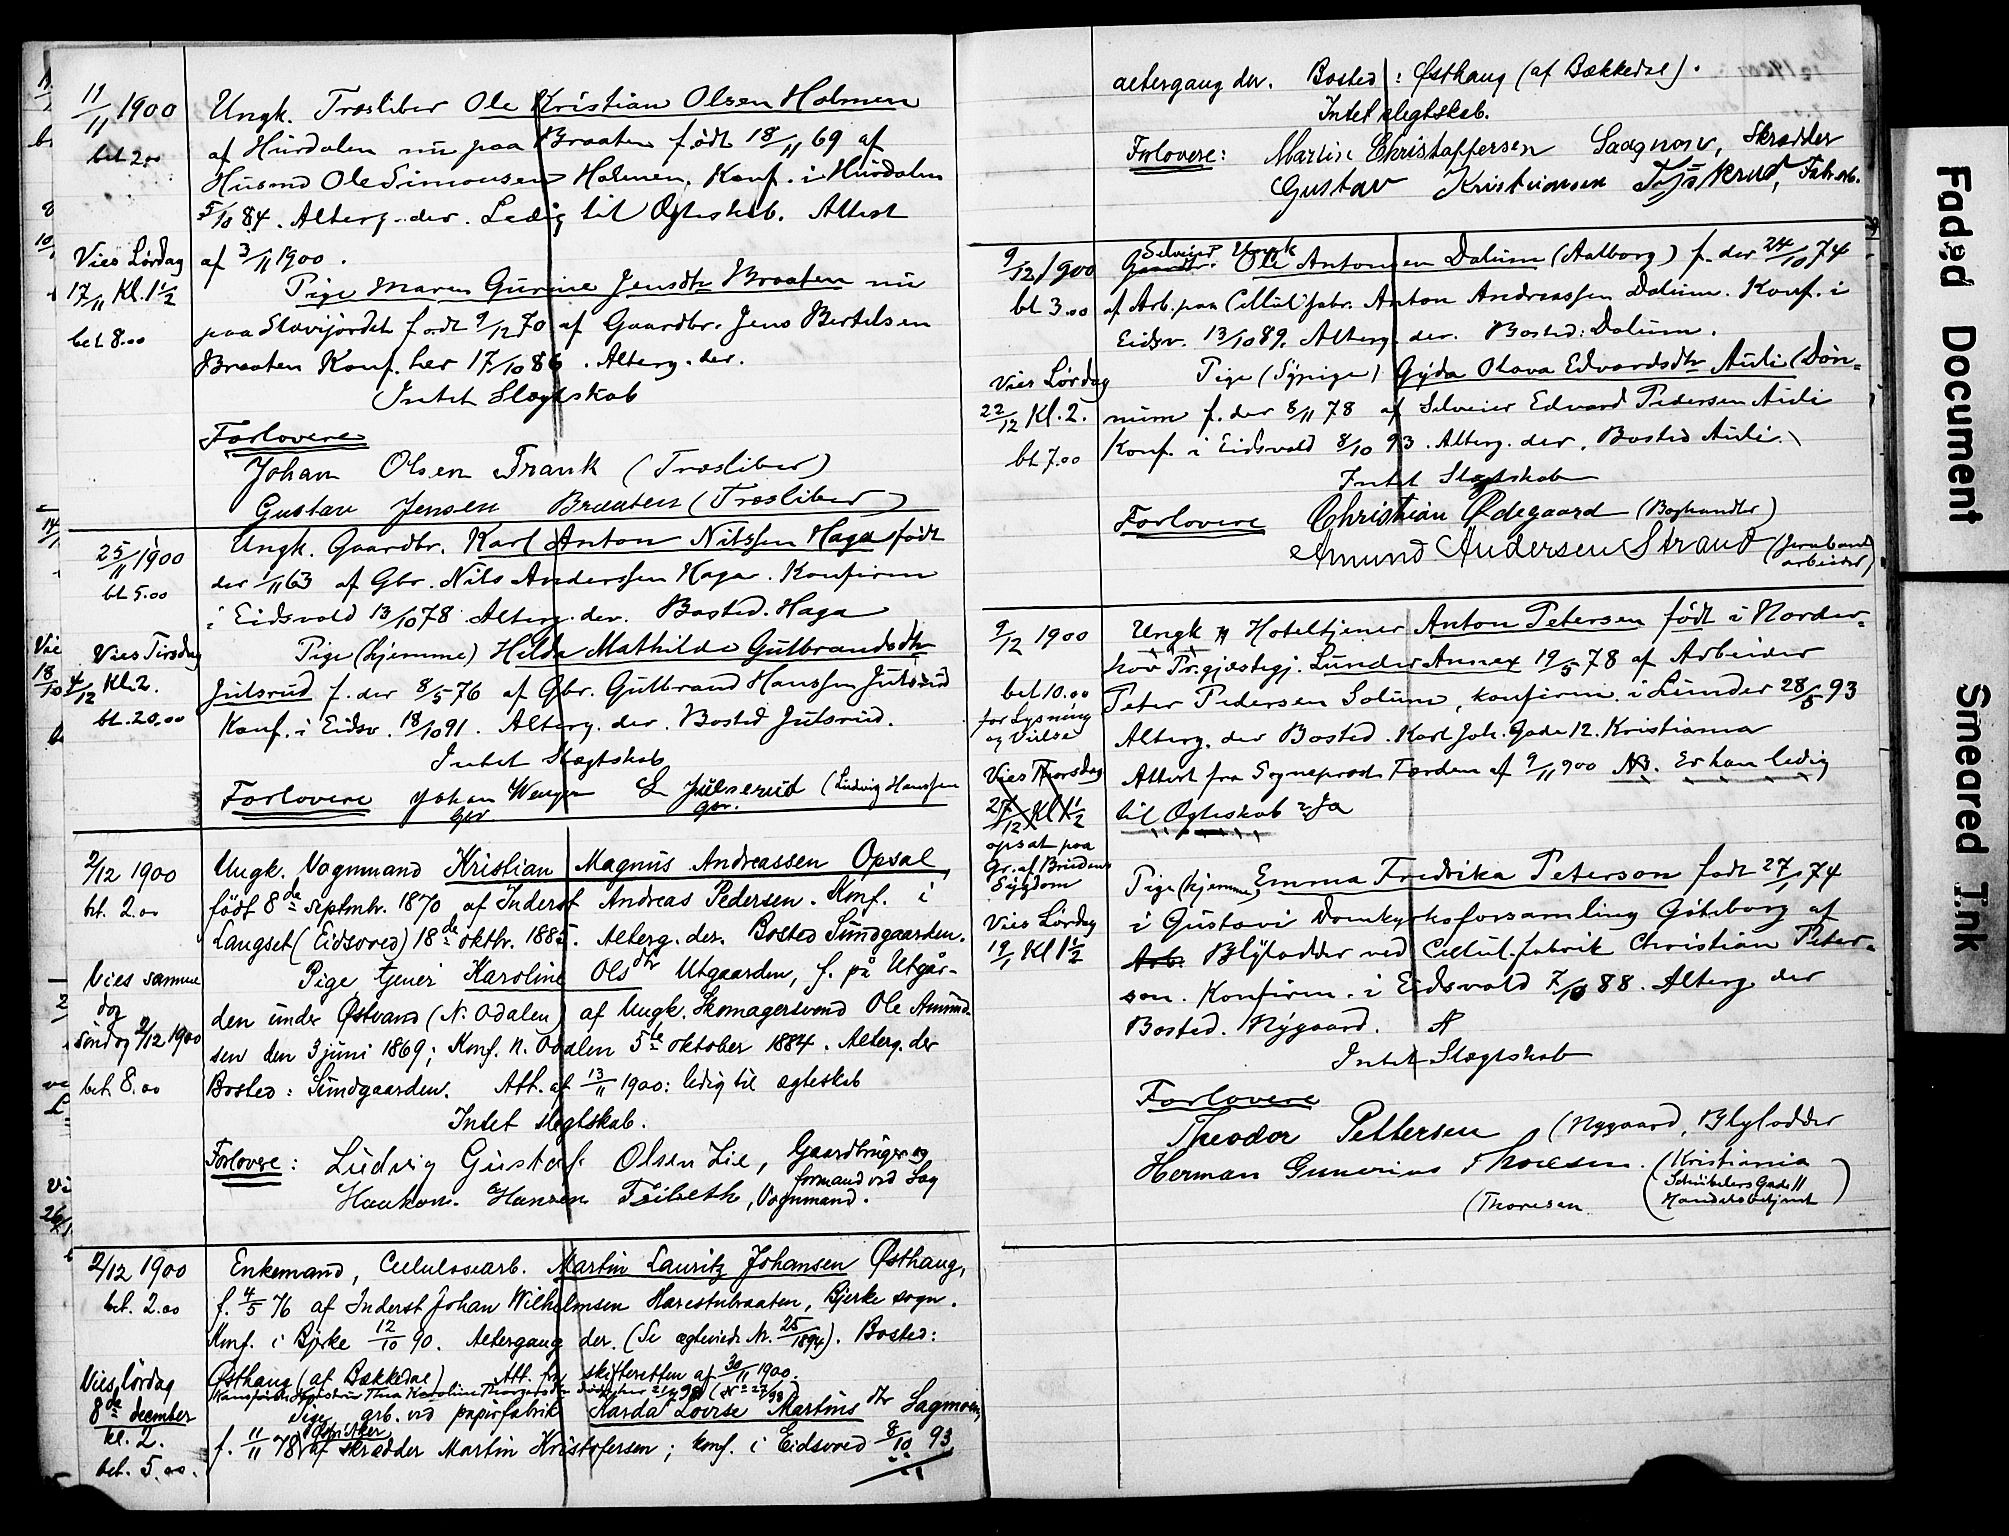 11/11 1900
bet 2.00
Ungk. Træsliber Ole Kristian Olsen Holmen
af Hurdalen nu paa Braaten født 18/11 69 af
Husmd Ole Simonsen Holmen. Konf. i Hurdalen
5/10 84. Alterg. der. Ledig til Ægteskab. Attest
af 3/11 1900.
Vies Lørdag
17/11 Kl. 1 1/2
bet 8.00
Pige Maren Gurine Jensdtr Braaten nu
paa Stavijordet født 9/12 70 af Gaardbr. Jens Bertelsen
Braaten Konf. her 17/10 86. Alterg. der.
Intet Slægtskab
Forlovere
Johan Olsen Frank (Træsliber)
Gustav Jensen Braaten (Træsliber)
25/11 1900
bt 5.00
Ungk. Gaardbr. Karl Anton Nilssen Haga født
der 1/11 63 af Gbr. Nils Anderssen Haga. Konfirm
i Eidsvold 13/10 78 Alterg. der. Bosted. Haga
Vies Tirsdag
4/12 Kl. 2.
bt. 20.00
Pige (hjemme) Hilda Mathilde Gulbrandsdtr
Julsrud f. der 8/5 76 af Gbr. Gulbrand Hanssen Julsrud
Konf. i Eidsv. 18/10 91. Alterg. der. Bosted Julsrud.
Intet Slægtskab
Forlovere Johan Wengen L Julserud (Ludvig Hanssen
gbr gbr.
2/12 1900
bt. 2.00
Ungk. Vognmand Kristian Magnus Andreassen Opsal,
født 8de septmbr. 1870 af Inderst Andreas Pedersen. Konf. i
Langset (Eidsvold) 18de oktbr. 1885. Alterg. der. Bosted Sundgaarden.
Vies samme
dag
Søndag 2/12 1900
bet. 8.00
Pige, tjener Karoline Olsdtr Utgaarden, f. på Utgår-
den under Østvand (N. Odalen) af Ungk. Skomagersvend Ole Amund-
sen den 3 juni 1869; Konf. N. Odalen 5te oktober 1884. Alterg. der
Bosted: Sundgaarden. Att. af 13/11 1900: ledig til ægteskab
Intet slegtskab.
Forlovere: Ludvig Gustaf Olsen Lie, Gaardbruger og
formand ved Sag
Haakon Hansen Tribeth, Vognmand.
2/12 1900
bet. 2.00
Enkemand, Cellulosearb. Martin Lauritz Johansen Østhaug,
f. 4/5 76 af Inderst Johan Wilhelmsen Harestubraaten, Bjerke sogn.
Konf. i Bjerke 12/10 90. Altergang der. (Se ægteviede Nr. 25/1894). Bosted:
Østhaug (af Bækkedal) Att. fra skifteretten af 30/11 1900.
Vies lørdag
8de december
kl. 2.
bet. 5.00.
Pige, arb. ved papirfabrik Harda Lovise Martinsdtr Sagmoen,
f. 11/11 78 af skrædder Martin Kristofersen; konf. i Eidsvold 8/10 93
altergang der. Bosted: Østhaug (af Bækkedal).
Intet slegtskab.
Forlovere: Martin Christaffersen Saagmoen, Skrædder
Gustav Kristiansen, Fab. arb.
9/12 1900
bt 3.00
Selveier Ungk
Gaardbr. Ole Antonsen Dalum (Aalborg) f. der 24/10 74
af Arb. paa Cellul fabr. Anton Andreassen Dalum. Konf. i
Eidsv. 13/10 89. Alterg. der. Bosted: Dalum.
Vies Lørdag
22/12 Kl. 2.
bt 7.00
Pige (Sypige) Gyda Olava Edvardsdtr Auli (Døn-
num f. der 8/11 78 af Selveier Edvard Pedersen Auli
Konf. i Eidsvold 8/10 93. Alterg. der. Bosted Auli.
Intet Slægtskab
Forlovere Christian Ødegaard (Boghandler)
Amund Andersen Strand (Jernbane
arbeider)
9/12 1900
bet 10.00
for Lysning
og Vielse
Ungk Hoteltjener Anton Petersen født i Norder-
hov Pr.gj. Lunder Annex 19/5 78 af Arbeider
Peter Pedersen Solum, konfirm. i Lunder 28/5 93
Alterg. der Bosted. Karl Joh. Gade 12. Kristiania
Attest fra Sogneprest Færden af 9/11 900 NB. Er han ledig
til Ægteskab? Ja
Vies Thorsdag
27/12 Kl 1 1/2
opsat paa
Gr. af Brudens
Sygdom
Vies Lørdag
19/1 Kl 1 1/2
Pige (hjemme) Emma Fredrika Peterson født 27/1 74
i Gustavi Domkyrkoforsamling Göteborg af
Arb. Blylodder ved Cellul.fabrik Christian Peter-
son. Konfirm. i Eidsvold 7/10 88. Alterg der
Bosted. Nygaard.
Intet Slægtskab
Forlovere
Theodor Pettersen (Nygaard, Blylodder
Herman Gunerius Thoresen. (Kristiania
Schübelers Gade 11
Handelsbetjent)
(Thoresen
Faded Document
Smeared Ink